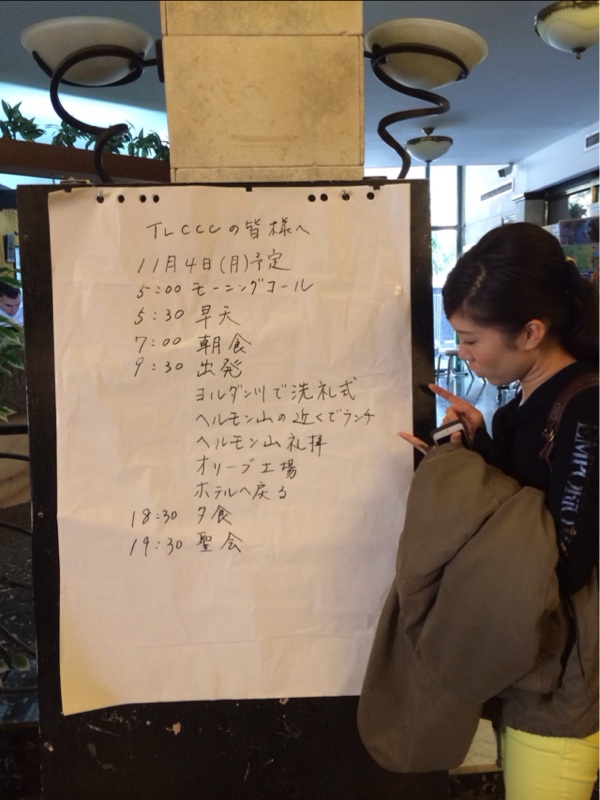 TLCCCの皆様へ
11月4日(月)予定
5:00 モーニングコール
5:30 早天
7:00 朝食
9:30 出発
ヨルダン川で洗礼式
ヘルモン山の近くでランチ
ヘルモン山礼拝
オリーブ工場
ホテルへ戻る
18:30 夕食
19:30 聖会
EMPORIO